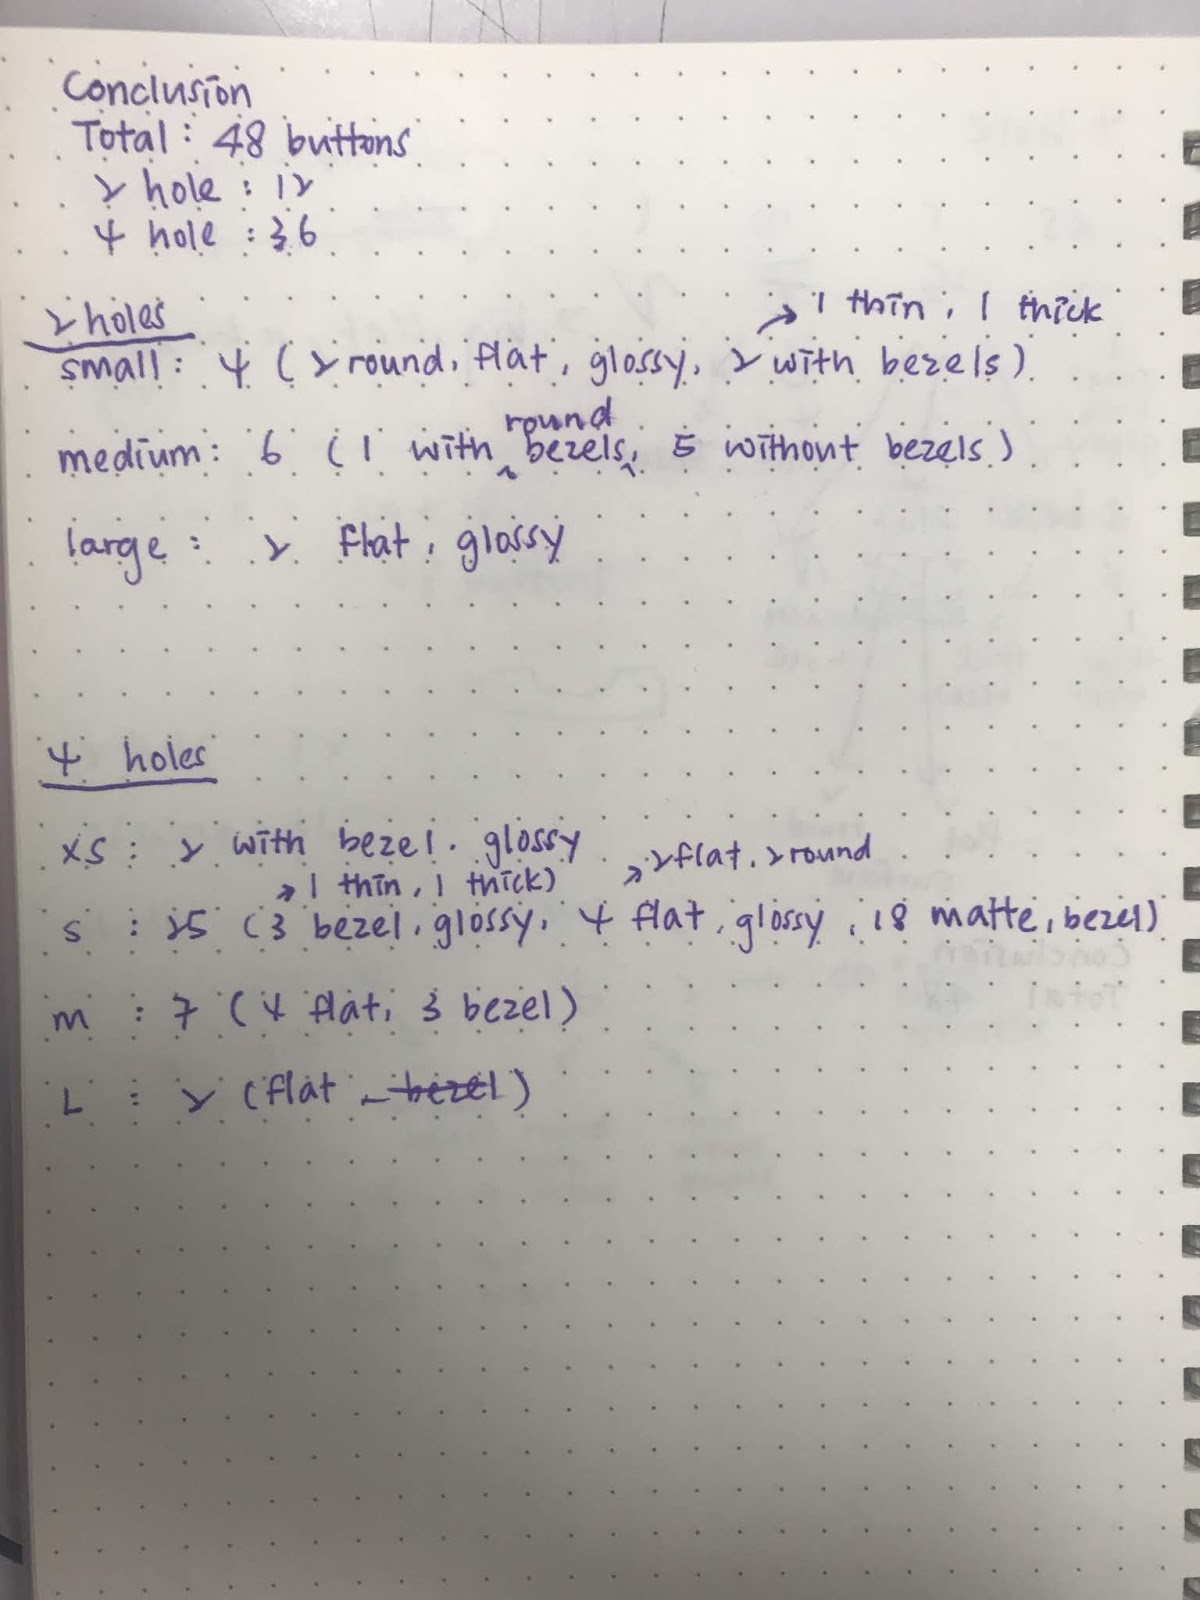 Conclusion
Total: 48 buttons
2 hole : 12
4 hole : 36
2 holes
→ 1 thin, 1 thick
small: 4 (2 round, flat, glossy, 2 with bezels)
round
medium: 6 (1 with bezels, 5 without bezels)
large: 2 flat, glossy
4 holes
XS: 2 with bezel. glossy
→ 2 flat, 2 round
→ 1 thin, 1 thick)
S : 25 (3 bezel, glossy, 4 flat, glossy, 18 matte, bezel)
m : 7 (4 flat, 3 bezel)
L : 2 (flat bezel)